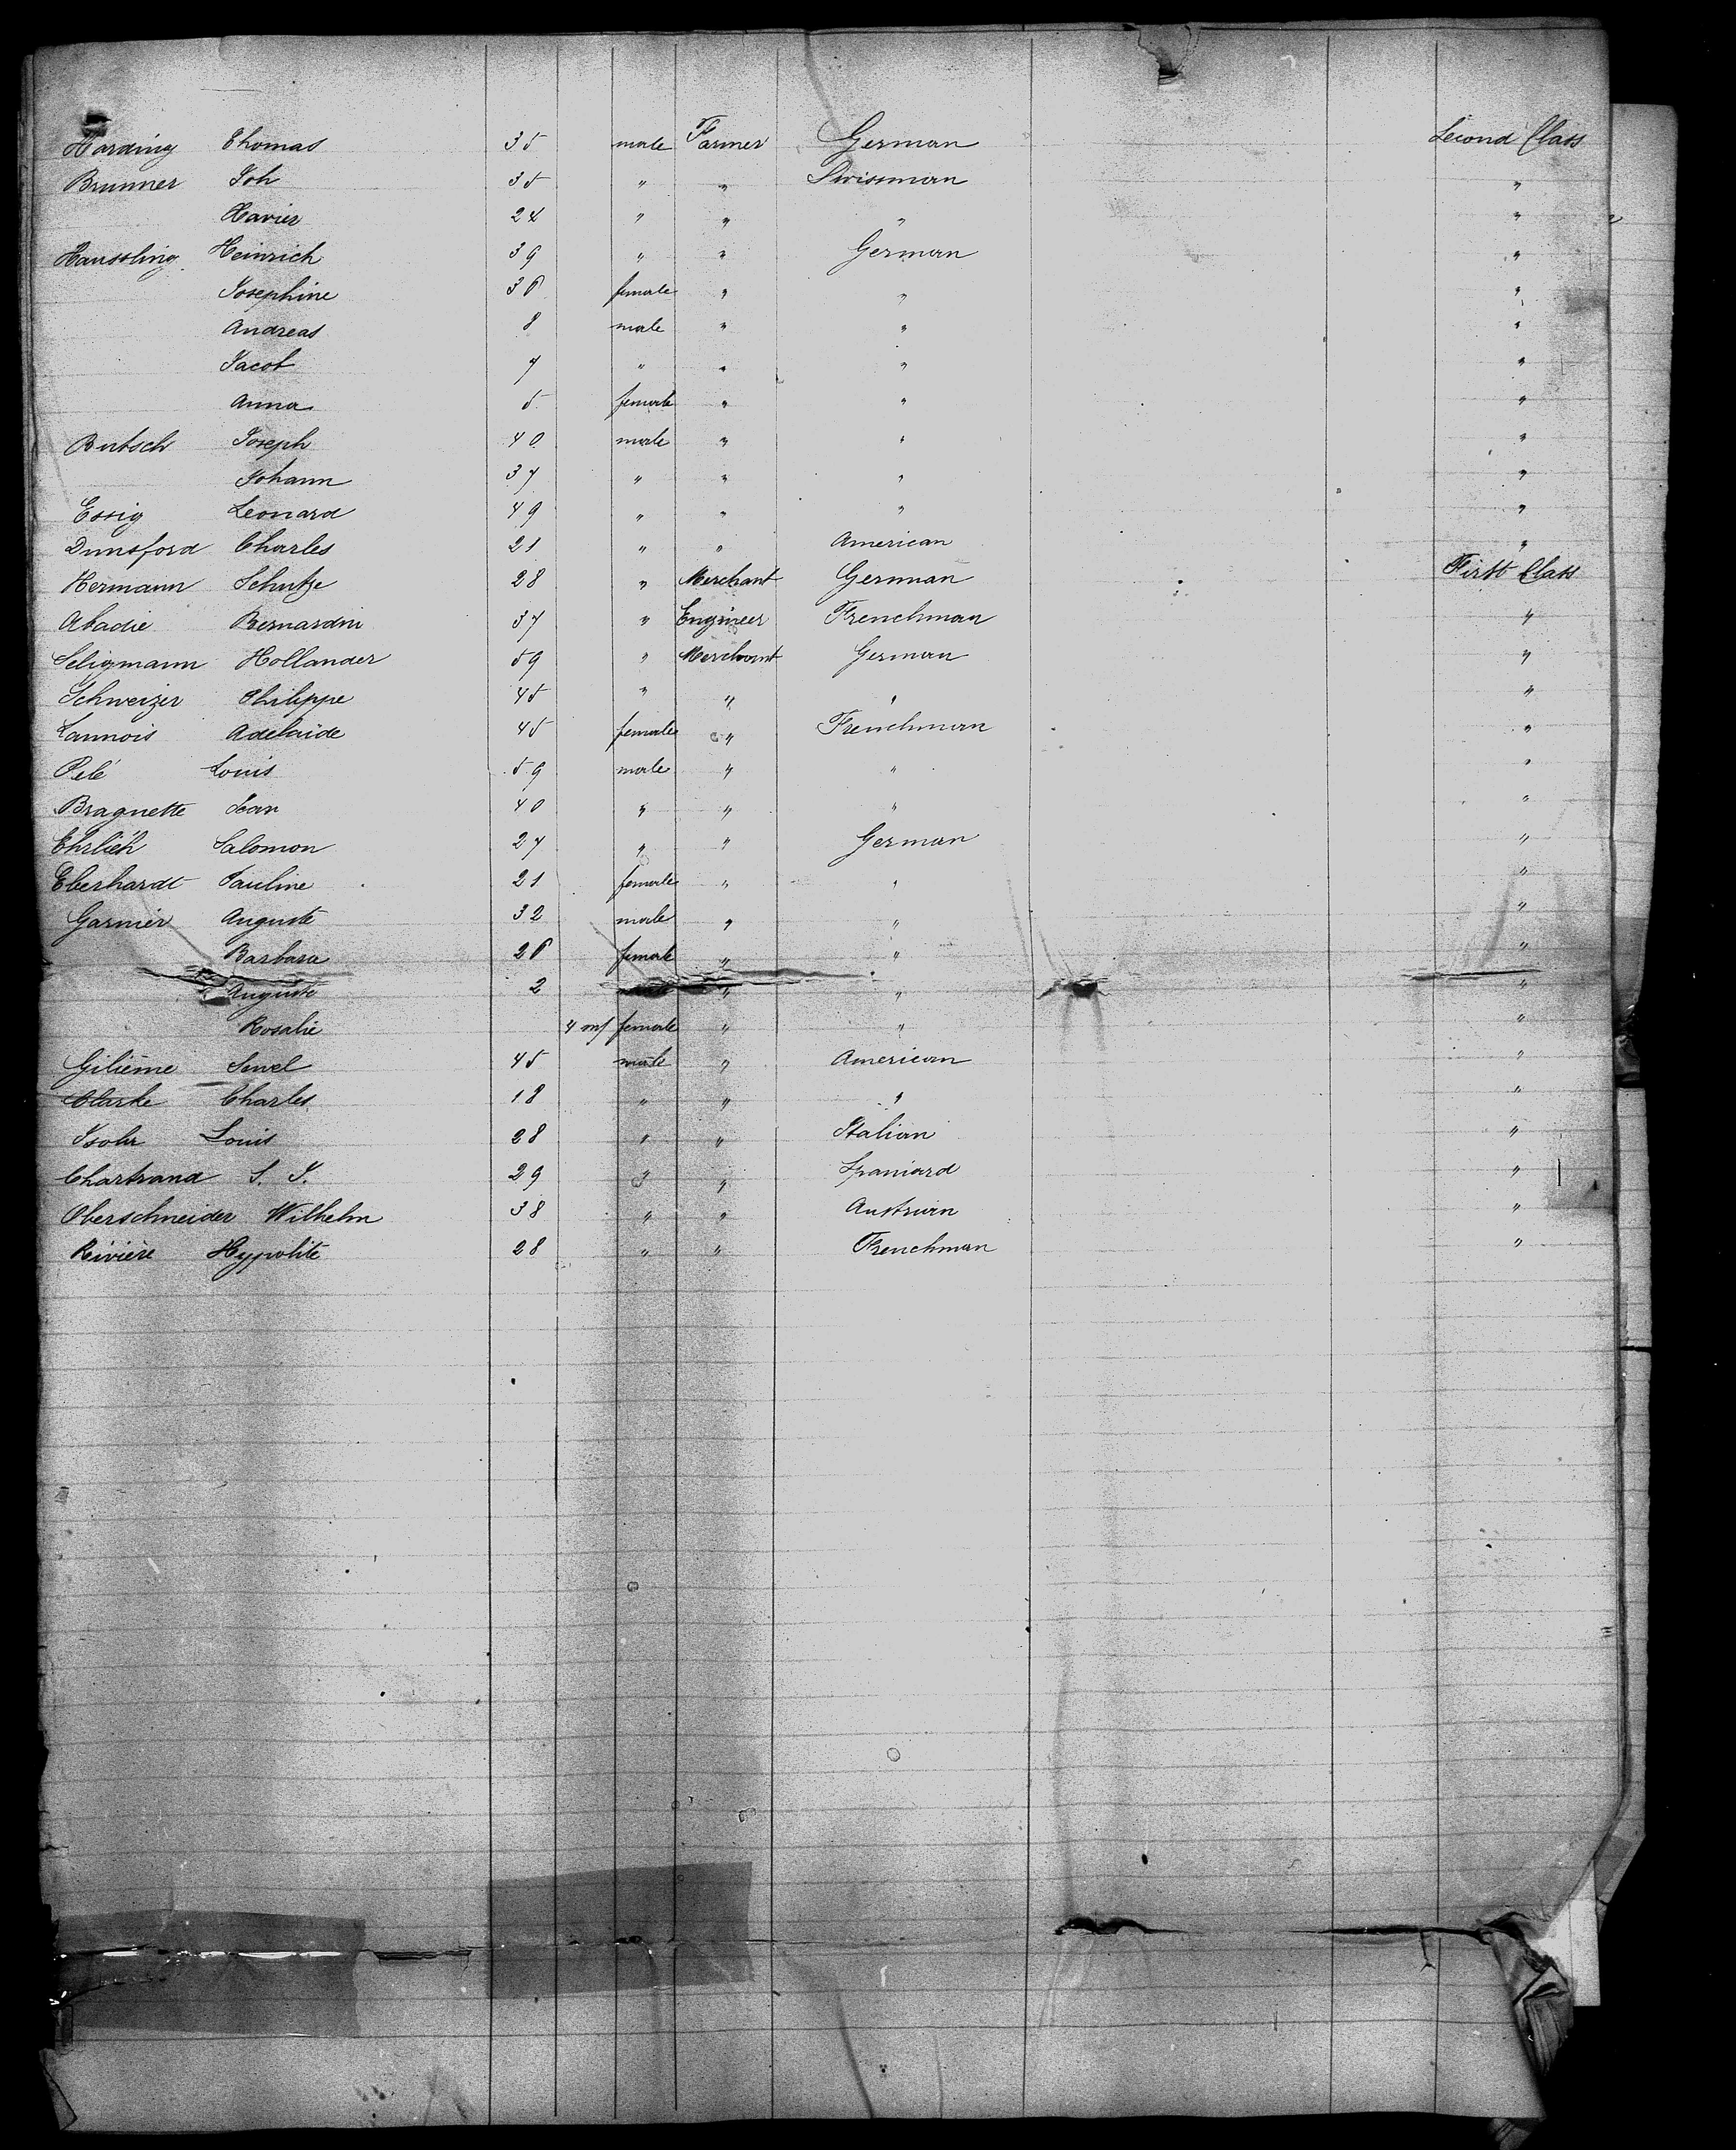 Harding Thomas 35 male Farmer German Second Class
Brunner Joh 35 " " Swissman "
Xavier 24 " " " "
Haussling Heinrich 39 " " German "
Josephine 36 female " " "
Andreas 8 male " " "
Jacob 7 " " " "
Anna 5 female " " "
Butsch Joseph 40 male " " "
Johann 37 " " " "
Essig Leonard 49 " " " "
Dunsford Charles 21 " " American "
Hermann Schutze 28 " Merchant German First Class
Abadie Bernardin 37 " Engineer Frenchman "
Seligmann Hollander 59 " Merchant German "
Schweizer Philippe 45 " " " "
Lannois Adelaïde 45 female " Frenchman "
Pelé Louis 59 male " " "
Bragnette Jean 40 " " " "
Ehrlich Salomon 27 " " German "
Eberhardt Pauline 21 female " " "
Garnier Auguste 32 male " " "
Barbara 26 female " " "
Auguste 2 male " " "
Rosalie 4 m/ female " " "
Gilième Sewel 45 male " American "
Clarke Charles 18 " " " "
Louis 28 " " Italian "
Chartrand S. J. 29 " " Spaniard "
Oberschneider Wilhelm 38 " " Austrian "
Rivière Hyppolite 28 " " Frenchman "